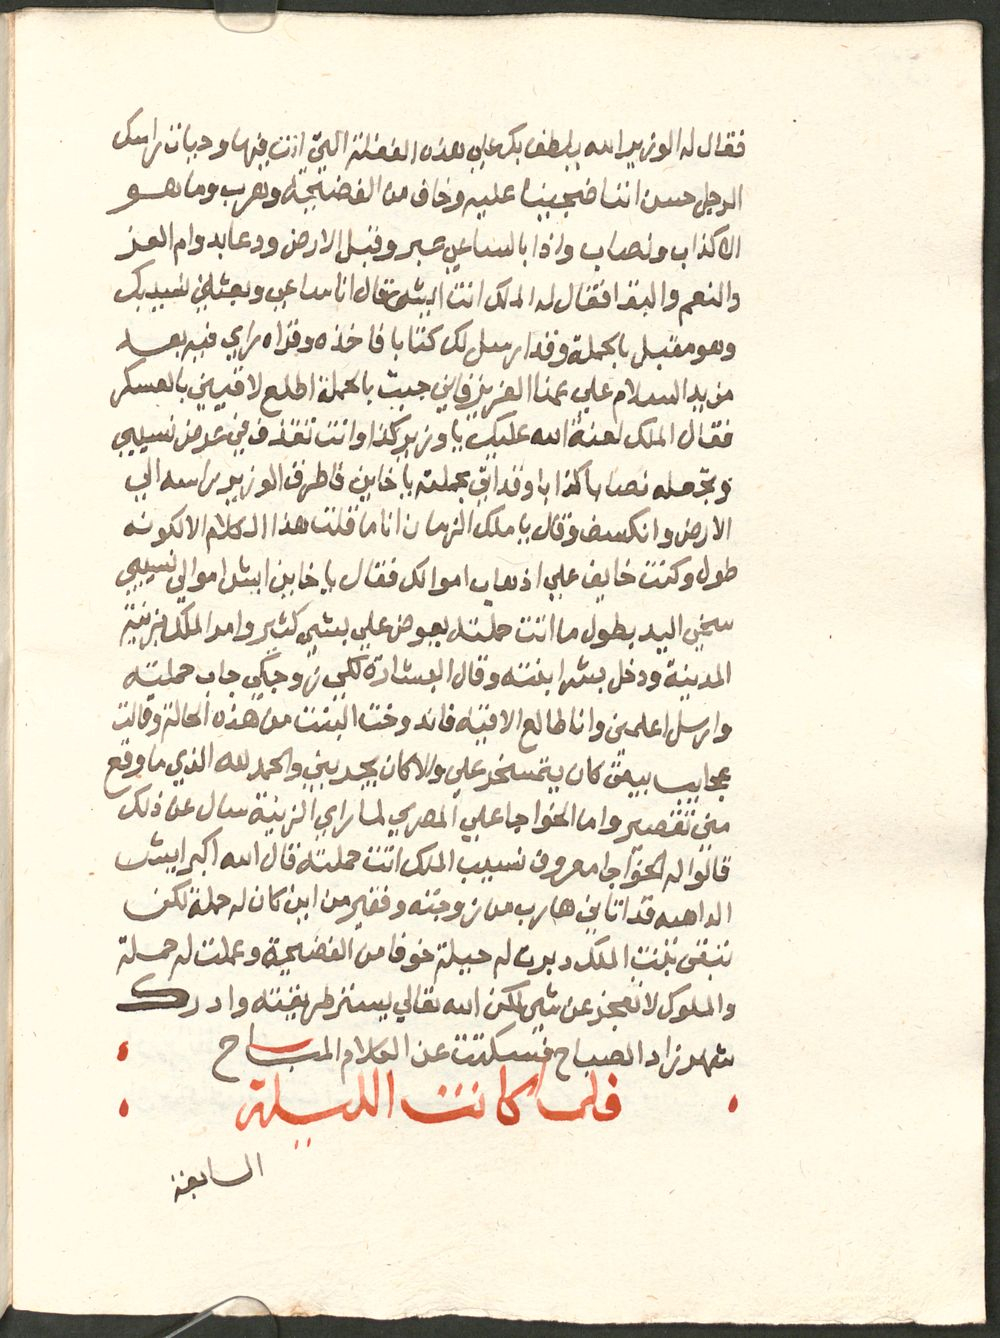 فقال له الوزير الله يلطف بك علي هذه الغفلة التي انت فيها وحياة راسك
الرجل حس اننا ضجينا عليه وخاف من الفضيحة وهرب وما هو
الا كذاب ونصاب واذا بالساعي عبر وقبل الارض ودعا بدوام العز
والنعم والبقا فقال له الملك انت ايش قال انا ساعي وبعتني نسيبك
وهو مقبل بالحملة وقد ارسل لك كتابا فاخذه وقراه راي فيه بعد
مزيد السلام علي عمنا العزيز فاني جيت بالحملة اطلع لاقيني بالعسكر
فقال الملك لعنة الله عليك يا وزير كذا وانت تقذف في عرض نسيبي
وتجعله نصابا كذابا وقد اتي بحملته يا خاين فاطرق الوزير براسه الي
الارض وانكسف وقال يا ملك الزمان انا ما قلت هذا الكلام الا لكونه
طول وكنت خايف علي اذهاب اموالك فقال يا خاين ايش اموالي نسيبي
سخي اليد يطول ما اتت حملته يعوض علي بشي كثير وامر الملك بزينة
المدينة ودخل بشر ابنته وقال البشارة لكي زوجكي جاب حملته
وارسل اعلمني وانا طالع الاقيه فاندوخت البنت من هذه الحالة وقالت
عجايب يبقي كان يتمسخر علي والا كان يجربني والحمد لله الذي ما وقع
مني تقصير واما الخواجا علي المصري لما راي الزينة سال عن ذلك
قالوا له الخواجا معروف نسيب الملك اتت حملته قال الله اكبر ايش
الداهيه قد اتاني هارب من زوجته وفقير من اين كان له حملة لكن
تبقي بنت الملك دبرت له حيلة خوفا من الفضيحة وعملت له حملة
والملوك لا تعجز عن شي لكن الله تعالي يستر طريقته وادرك
شهرزاد الصباح فسكتت عن الكلام المباح
فلما كانت الليلة
السابعة